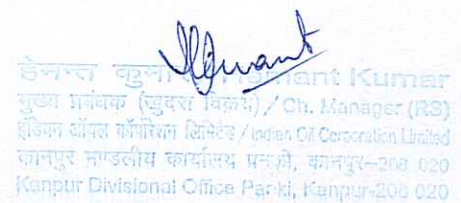 Hemant
हेमन्त कुमार / Hemant Kumar
मुख्य प्रबंधक (खुदरा विक्रय) / Ch. Manager (RS)
इंडियन ऑयल कॉर्पोरेशन लिमिटेड / Indian Oil Corporation Limited
कानपुर मण्डलीय कार्यालय पनकी, कानपुर-208 020
Kanpur Divisional Office Panki, Kanpur-208 020